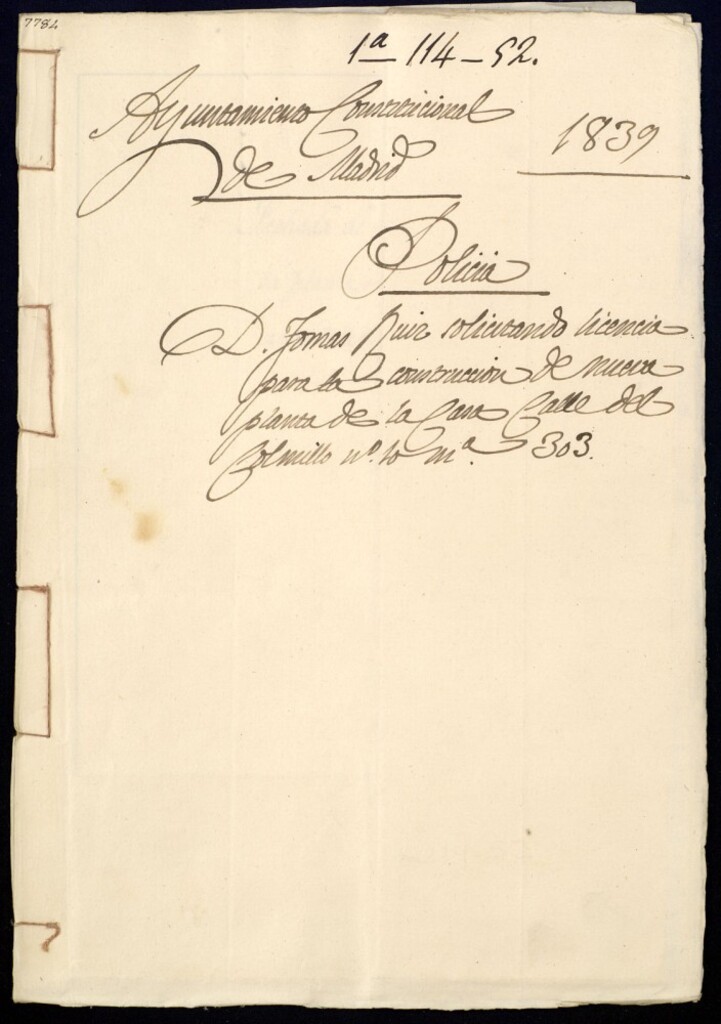 7784
1ª 114-52.
Ayuntamiento Constitucional
de Madrid
1839
Policia
D. Tomas Ruiz solicitando licencia
para la construccion de nueva
planta de la Casa Calle del
Colmillo nº. 10 mª. 303.